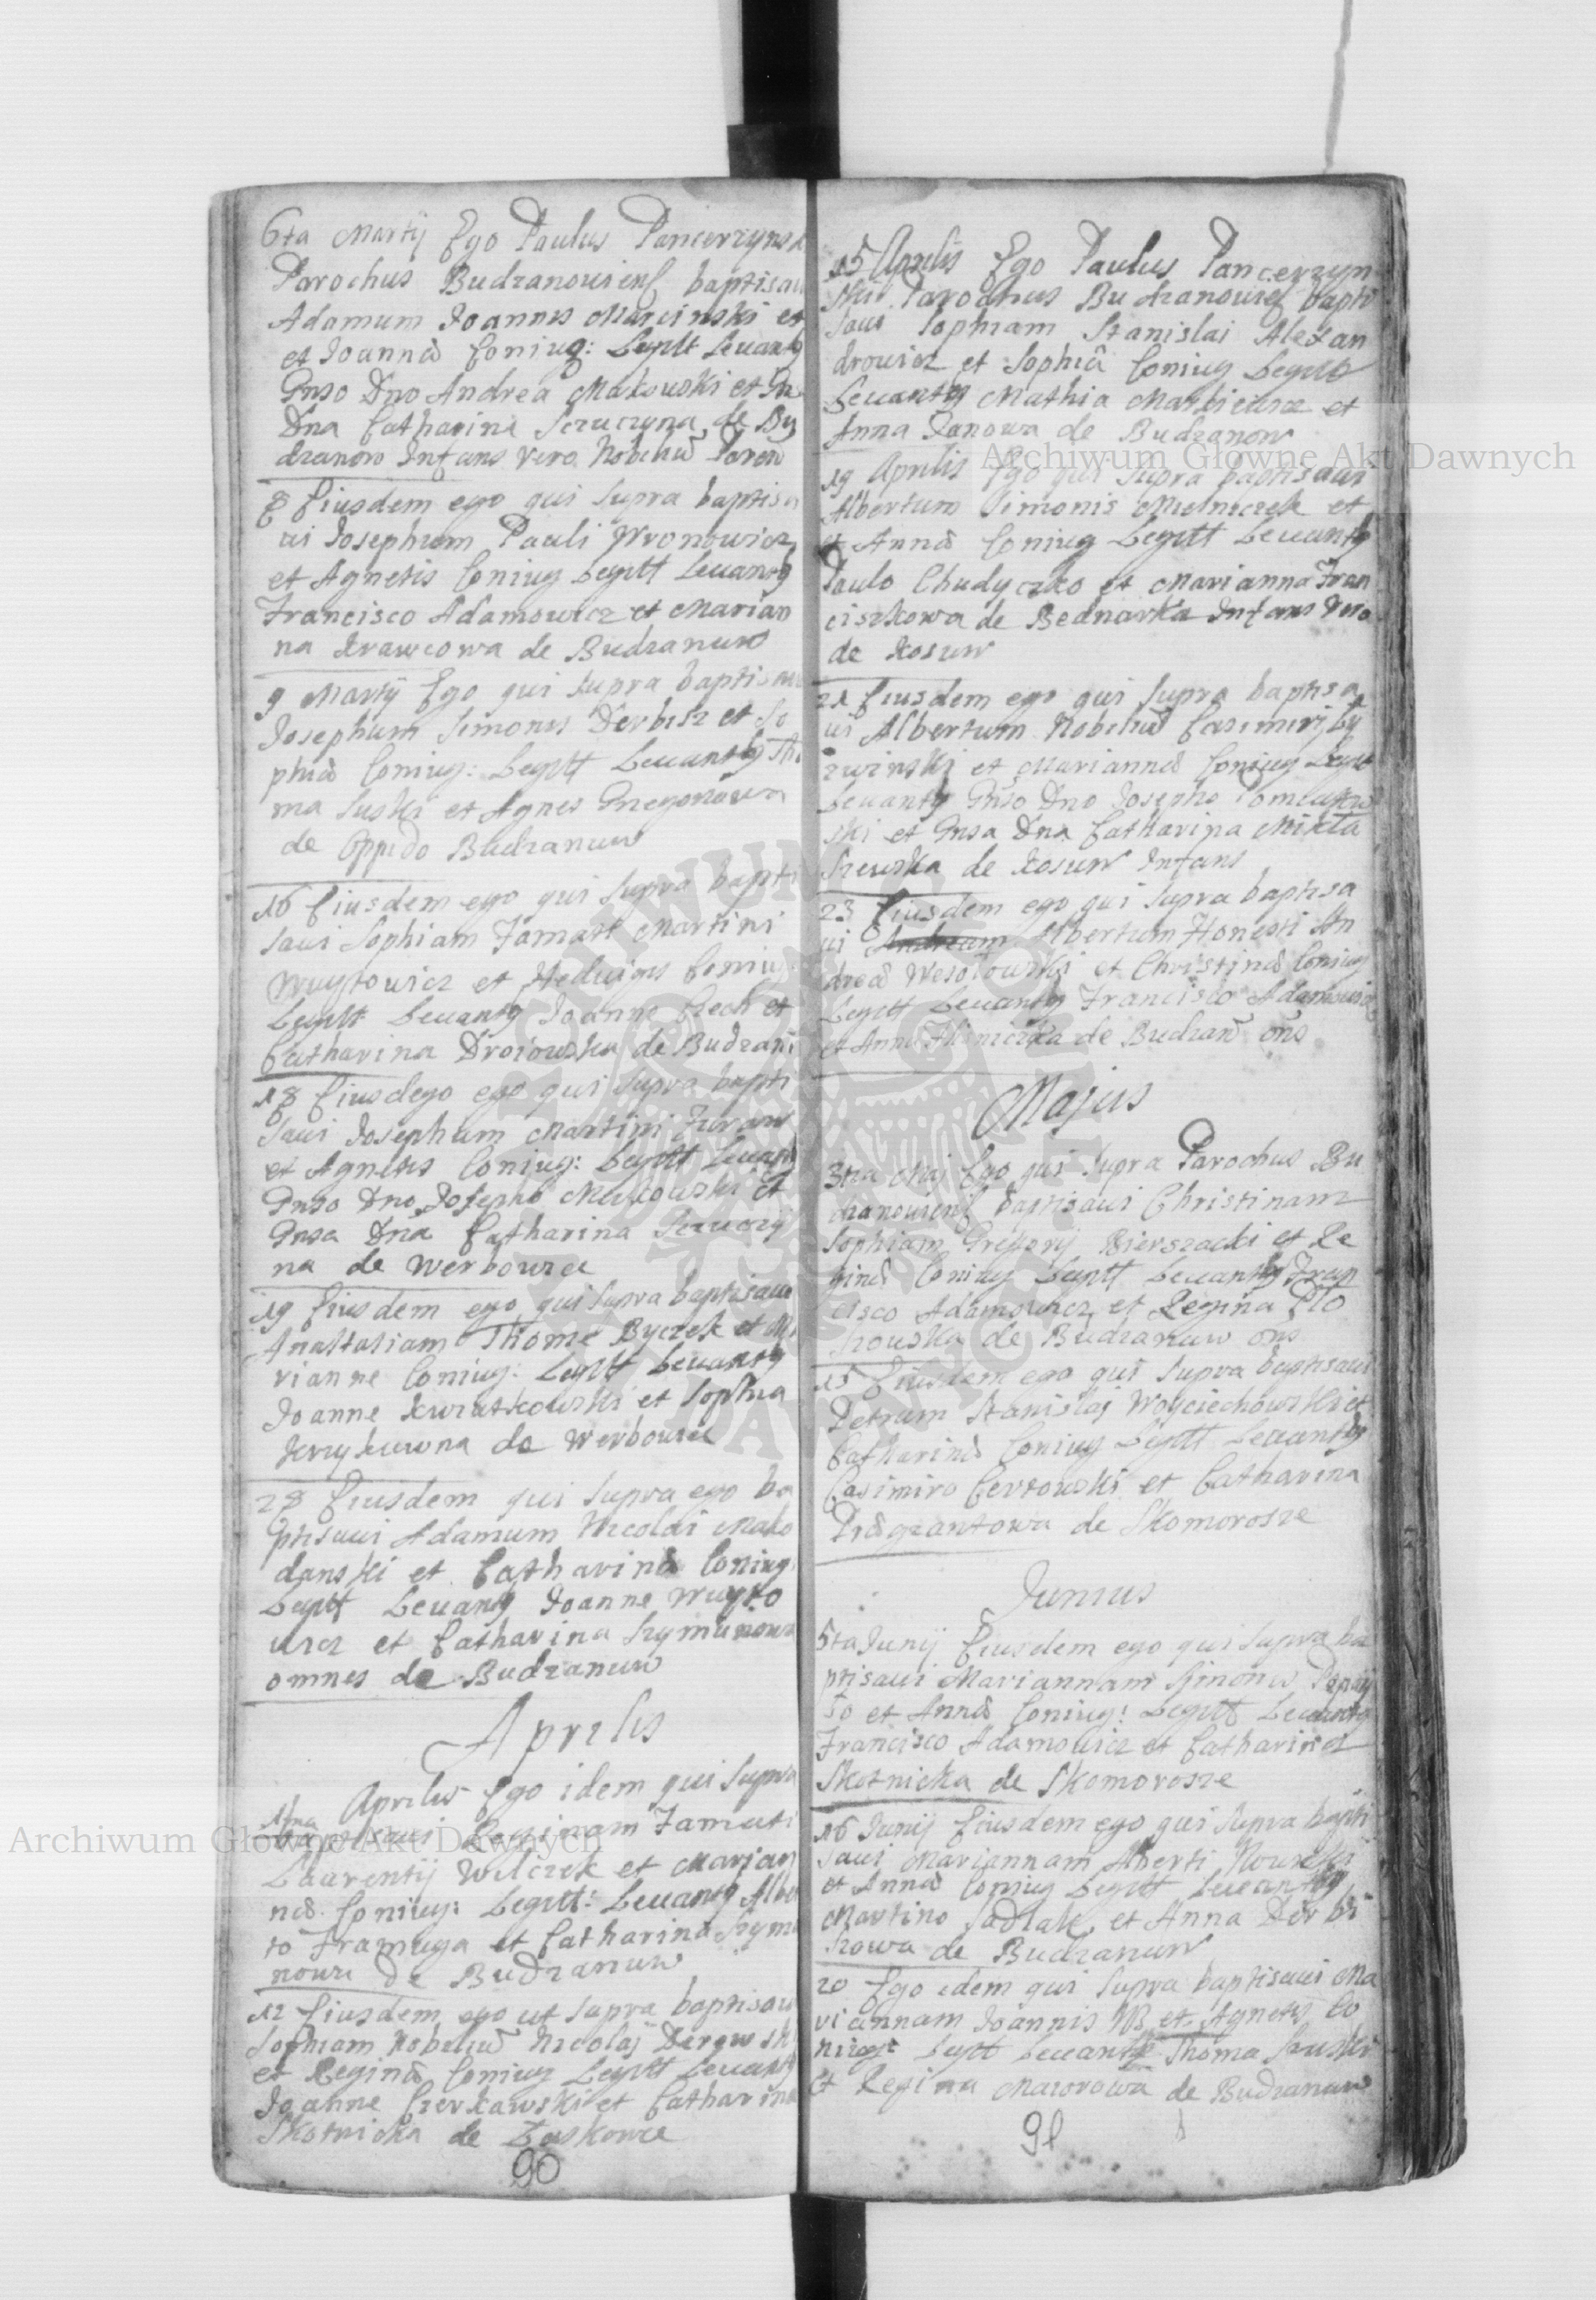 6ta Martij Ego Paulus Pancerzyns
Parochus Budzanouiens baptisau
Adamum Joannis Marcinski et
et Joannæ Coniug: Legitt Leuantg
Gnso Dno Andrea Makouski et Gn
Dna Catharina Szczuczyna de Bu
dzanow Infans vero Nobiliũ Paren
8 Eiusdem ego qui supra baptisa
ui Josephum Pauli Wronowicz
et Agnetis Coniug Legitt Leuantg
Francisco Adamowicz et Marian
na Krawcowa de Budzanuw
9 Martij Ego qui supra baptisau
Josephum Simonis Derbisz et So
phiæ Coniug: Legitt Leuantg Tho
ma Suski et Agnes Gregorowa
de Oppido Budzanuw
16 Eiusdem ego qui supra bapti
saui Sophiam Martini
Wuytowicz et Heduigis Coniug
Legitt Leuantg Joanne Czech et
Catharina Droiowska de Budzan
18 Eiusdego ego qui supra bapti
saui Josephum Martini
et Agnetis Coniug: Legitt Leuantg
Gnso Dno Josepho Makouski et
Gnsa Dna Catharina Szczuczy
na de Werbowce
19 Eiusdem ego qui supra baptisaui
Anastasiam Thome Byczek et Ma
rianne Coniug: Legitt Leuantg
Joanne Kwiatkowski et Sophia
de Werbowce
28 Eiusdem qui supra ego ba
ptisaui Adamum Nicolai Mako
danski et Catharinæ Coniug
Legitt Leuantg Joanne Wuyto
wicz et Catharina Szymunowa
omnes de Budzanuw
Aprilis
1ma Aprilis Ego idem qui supra
baptisaui Reginam
Laurentij Wilczek et Marian
næ Coniug: Legitt: Leuantg Alber
to Framuga et Catharina Szymu
nowa de Budzanuw
12 Eiusdem ego ut supra baptisau
Sophiam Nobiliũ Nicolaj Derewsk
et Reginæ Coniug Legitt Leuantg
Joanne Czerkawski et Catharina
Skotnicka de Laskowce
90
15 Aprilis Ego Paulus Pancerzyn
ski Parochus Budzanouies bapti
saui Sophiam Stanislai Alexan
drowicz et Sophiæ Coniug Legitt
Leuantg Mathia et
Anna Janowa de Budzanow
19 Aprilis Ego qui supra baptisaui
Albertum Simonis Mielniczek et
et Annæ Coniug Legitt Leuantg
Paulo Chudyczko et Marianna Fran
ciszkowa de Bednarka Infans vero
de Kosuw
21 Eiusdem ego qui supra baptisa
ui Albertum Nobiliũ Casimirj By
et Mariannæ Coniug Legitt
Leuantg Gnso Dno Josepho
ski et Gnsa Dna Catharina Mikla
szewska de Kosuw Infans
23 Eiusdem ego qui supra baptisa
ui Andream Albertum Honesti An
dreæ Wesołowski et Christinæ Coniug
Legitt Leuantg Francisco Adamowicz
et Anna de Budzan ons
Majus
3tia Maj Ego qui supra Parochus Bu
dzanouiens baptisaui Christinam
Sophiam Gregorij Bierszacki et Re
ginæ Coniug Legitt Leuantg Fran
cisco Adamowicz et Regina Pio
trouska de Budzanuw ons
15 Eiusdem ego qui supra baptisaui
Petrum Stanislaj Woyciechowski et
Catharinæ Coniug Legitt Leuantg
Casimiro Certowski et Catharina
de Skomorosze
Junius
5ta Junij Eiusdem ego qui supra ba
ptisaui Mariannam Simonis
to et Annæ Coniug: Legitt Leuantg
Francisco Adamowicz et Catharina
Skotnicka de Skomorosze
16 Junij Eiusdem ego qui supra bapti
saui Mariannam Alberti
et Annæ Coniug Legitt Leuantg
Martino Sadlak et Anna Derbi
szowa de Budzanuw
20 Ego idem qui supra baptisaui Ma
riannam Joannis NB et Agnetis Co
niug: Legitt Leuantg Thoma Suski
et Regina Maiorowa de Budzanuw
91
Archiwum Głowne Akt Dawnych
Archiwum Głowne Akt Dawnych